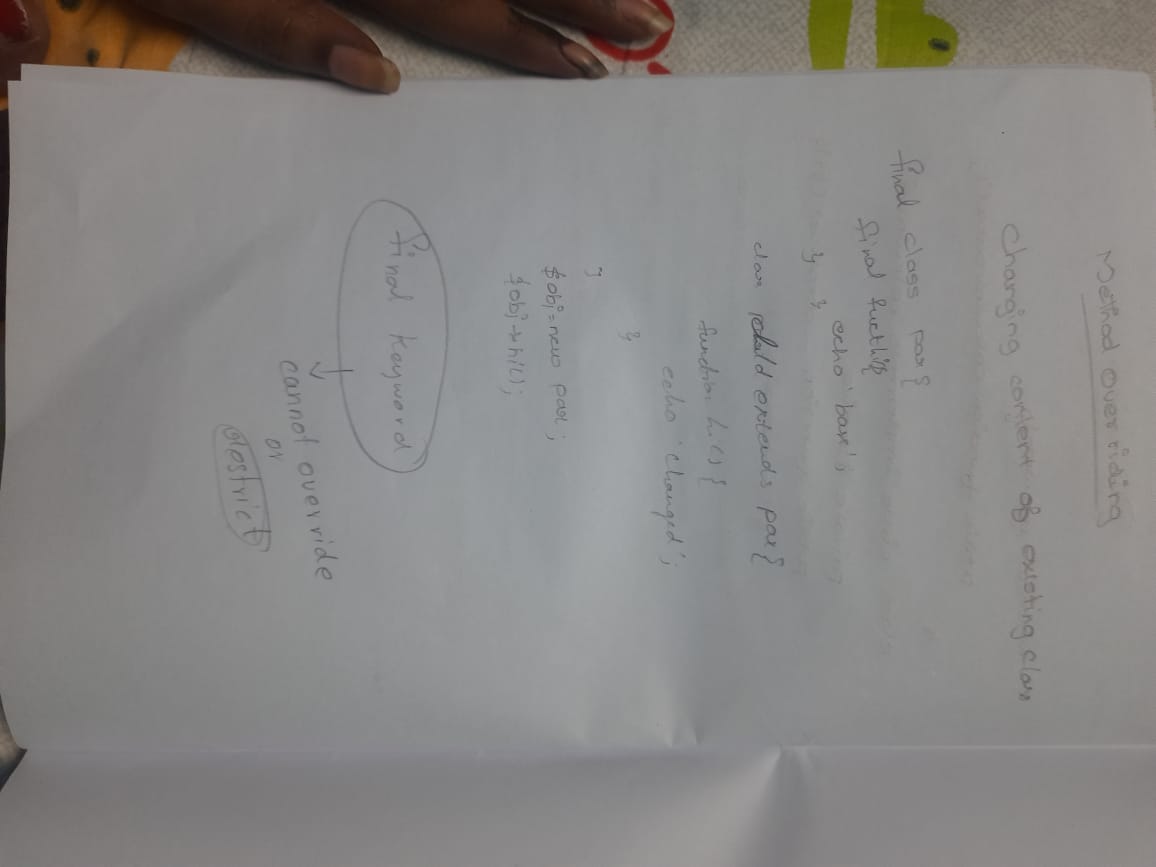 Method overriding
Changing content of existing class
final class par{
final fuct hi(){
echo 'bax';
} }
class child extends par{
function hi() {
echo 'changed';
}
}
$obj=new par;
$obj->hi();
final keyword
cannot override
or
restrict